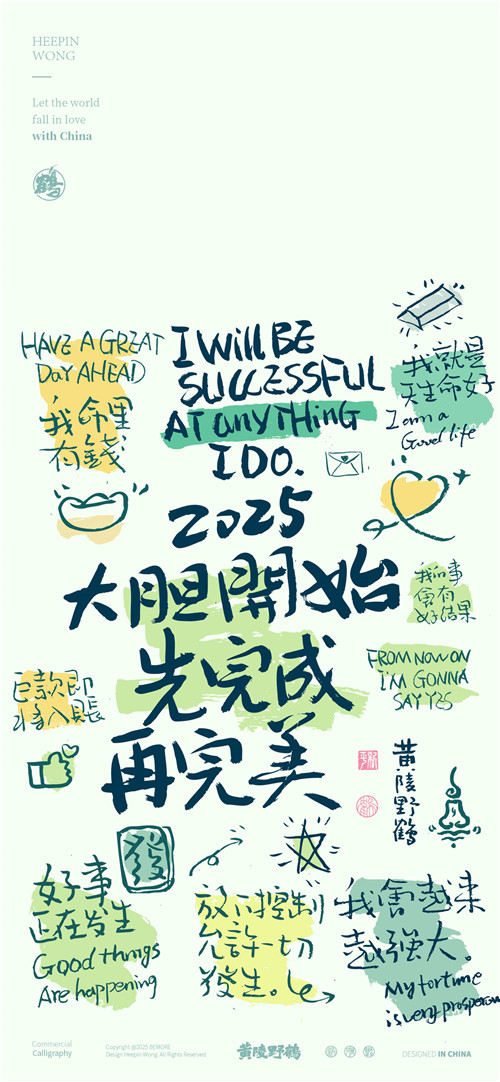 HEEPIN
WONG
Let the world
fall in love
with China
鶴
HAVE A GREAT
DAY AHEAD
我命里
有錢
I Will BE
SUCCESSFUL
AT anyTHiNG
I DO.
我就是
天生命好
I am a
Good life
2025
大胆開始
先完成
再完美
我的事
會有
好結果
FROM NOW ON
i'M GONNA
SAY YES
巨款即
將入賬
黄陵野鶴
發
好事
正在发生
Good things
Are happening
放下控制
允許一切
發生。
我會越来
越強大。
My fortune
is very prosperous
Commercial
Calligraphy
Copyright @2025 BEMORE
Design Heepin Wong. All Rights Reserved
黄陵野鶴
DESIGNED IN CHINA